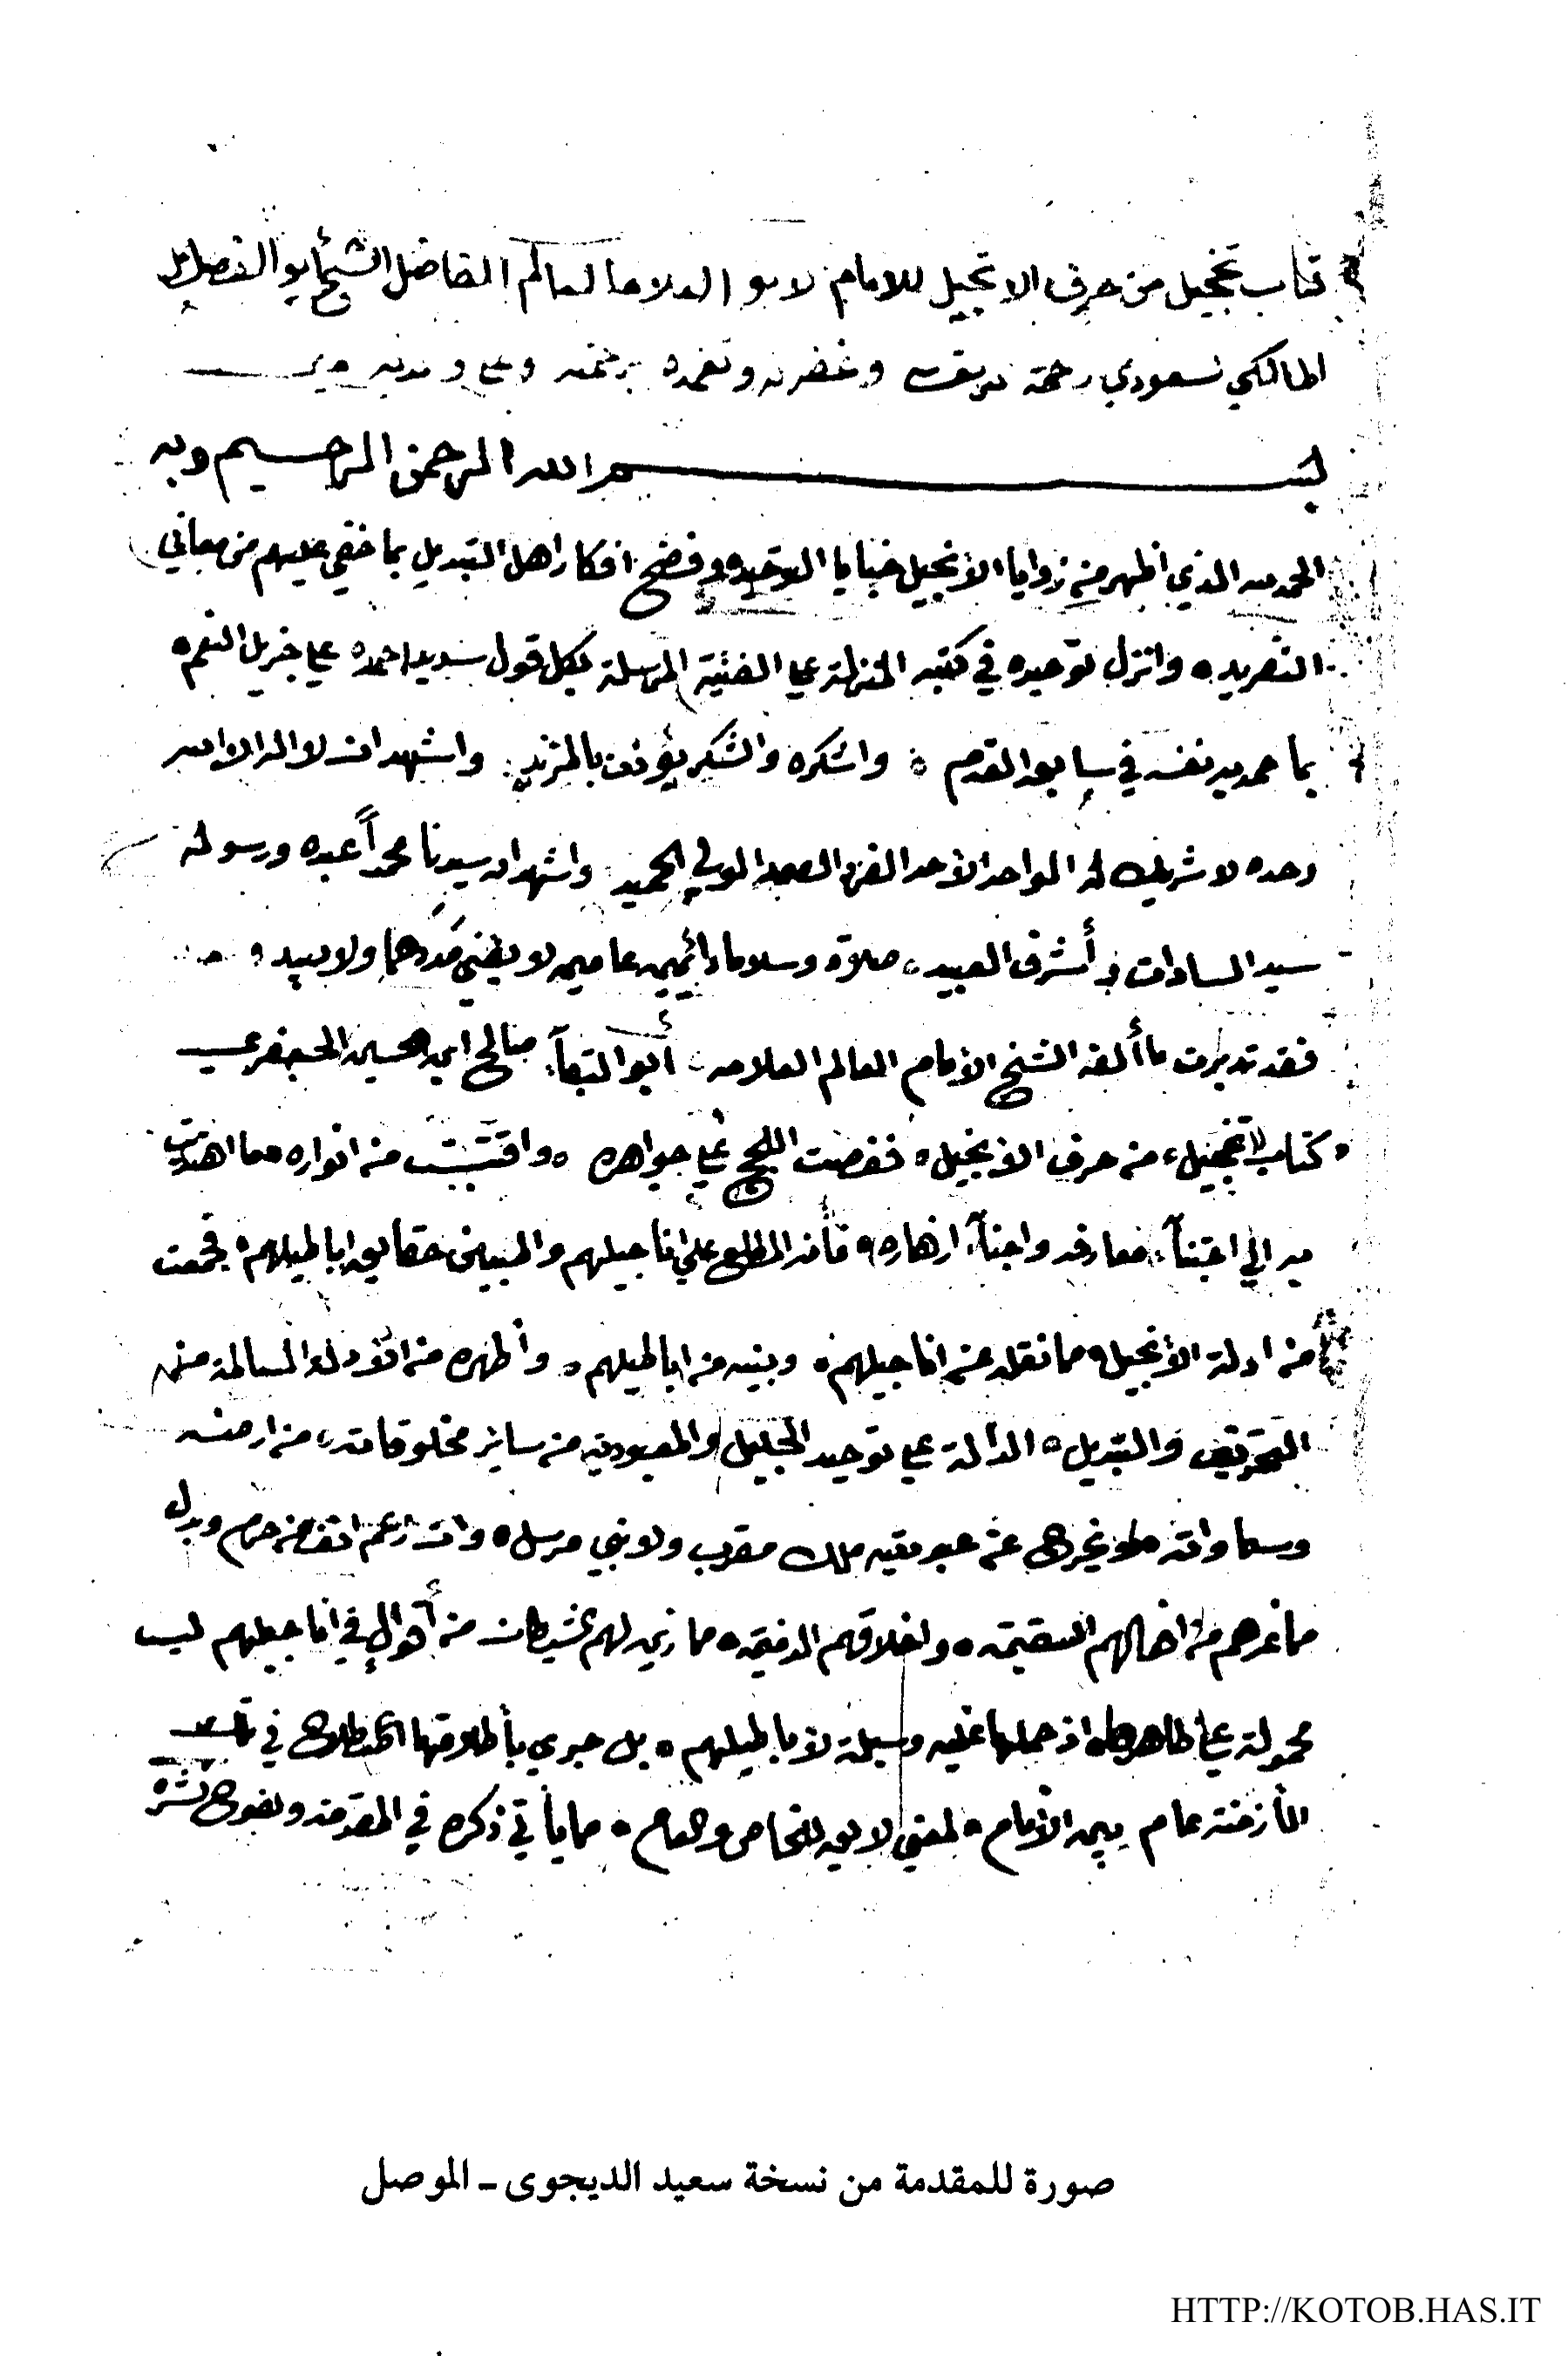 كتاب تخجيل من حرف الانجيل للامام العالم الفاضل الشيخ ابو الفضل
المالكي سعودي رحمة وغفر له وتغمده برحمته
بسم الله الرحمن الرحيم وبه
الحمد لله الذي اظهر من زوايا الأنجيل خبايا التوحيد وفضح افكار اهل التبديل بما خفي عليهم من معاني
التفريد، وانزل توحيده في كتبه المنزلة على المرسلة بكل قول سديد احمده على جزيل النعم،
بما حمد به نفسه في سابق القدم ، واشكره والشكر يؤذن بالمزيد، واشهد ان لا اله الا الله
وحده لا شريك له الواحد الأحد الفرد الصمد الولي الحميد، واشهد ان سيدنا محمداً عبده ورسوله
سيد السادات وأشرف العبيد، صلاة وسلاما دائمين لا يفنى مددهما ولا يبيد و
فقد تدبرت ما ألفه الشيخ الأمام العالم العلامه أبو البقآء صالح ابن الحسين الجعفري
كتاب تخجيل، من حرف الأنجيل، فغصت اللجج على جواهره ، واقتبست من انواره ما اهتديت
به الي اجتنآء معارفه واجنآء ازهاره، فأنه المطلع علي اناجيلهم والمبين حقايق اباطيلهم، فجمعت
من ادلة الأنجيل، مما نقله عن اناجيلهم، وبينه من اباطيلهم، وأظهره من الأدلة السالمة من
التحريف والتبديل، الدآلة على توحيد الجليل والعبودية من ساير مخلوقاته، من ارضه
وسماواته فلم يخرج عن عبوديته ملك مقرب ولا نبي مرسل، وان زعم من حرم وبدل
مما غرهم من افهالهم السقيمه، واخلاقهم مما زين لهم شيطان من أقوال في اناجيلهم ليست
محمولة على ظاهرها، اذ حملها عليه وسيلة لأباطيلهم، بل جري بأطلاقها اصطلاح في
الأزمنة عام بين الأنام، لمعنى لايق للخاص والعام، مما يأتي ذكره في المقدمة ويفوح نشره
صورة للمقدمة من نسخة سعيد الديجوى - الموصل
HTTP://KOTOB.HAS.IT